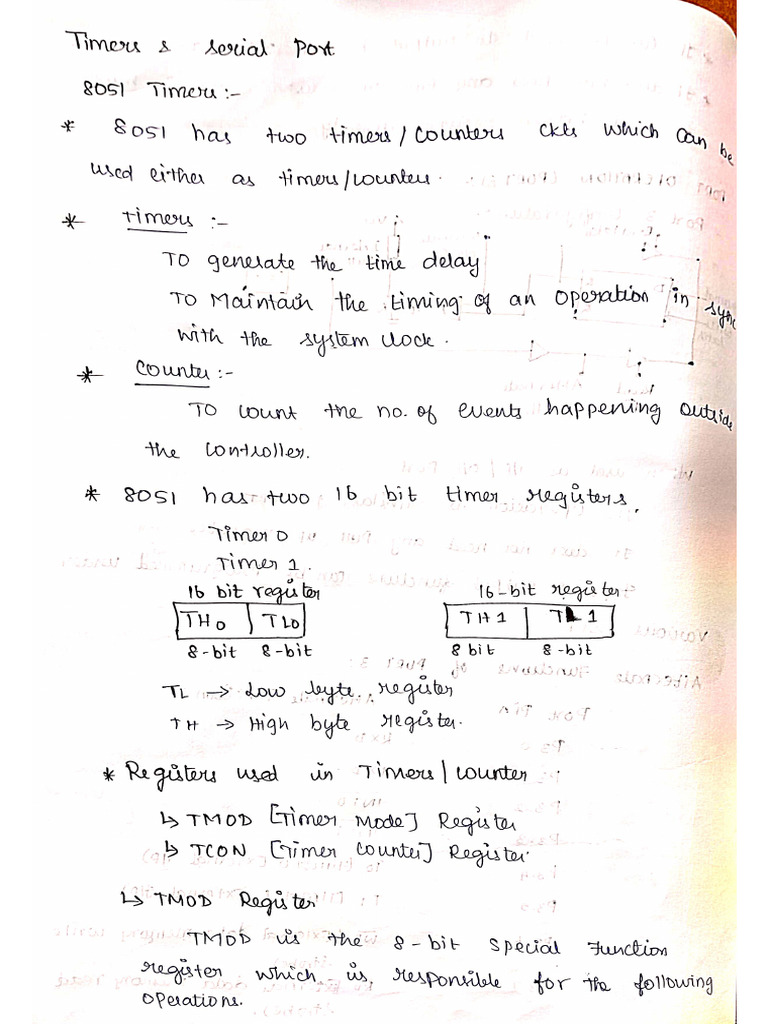 Timers & Serial Port
8051 Timers :-
* 8051 has two timers/counters ckts which can be
used either as timers/counters.
* Timers :-
TO generate the time delay
TO Maintain the timing of an operation in sync
with the system clock.
* Counter :-
TO count the no. of events happening outside
the controller.
* 8051 has two 16 bit timer registers.
Timer 0
Timer 1.
16 bit register 16-bit register
TH0 TL0 TH1 TL1
8-bit 8-bit 8 bit 8-bit
TL → Low byte register
TH → High byte register.
* Registers used in Timers/counter
↳ TMOD [Timer Mode] Register
↳ TCON [Timer Counter] Register
↳ TMOD Register
TMOD is the 8-bit special Function
register which is responsible for the following
operations.